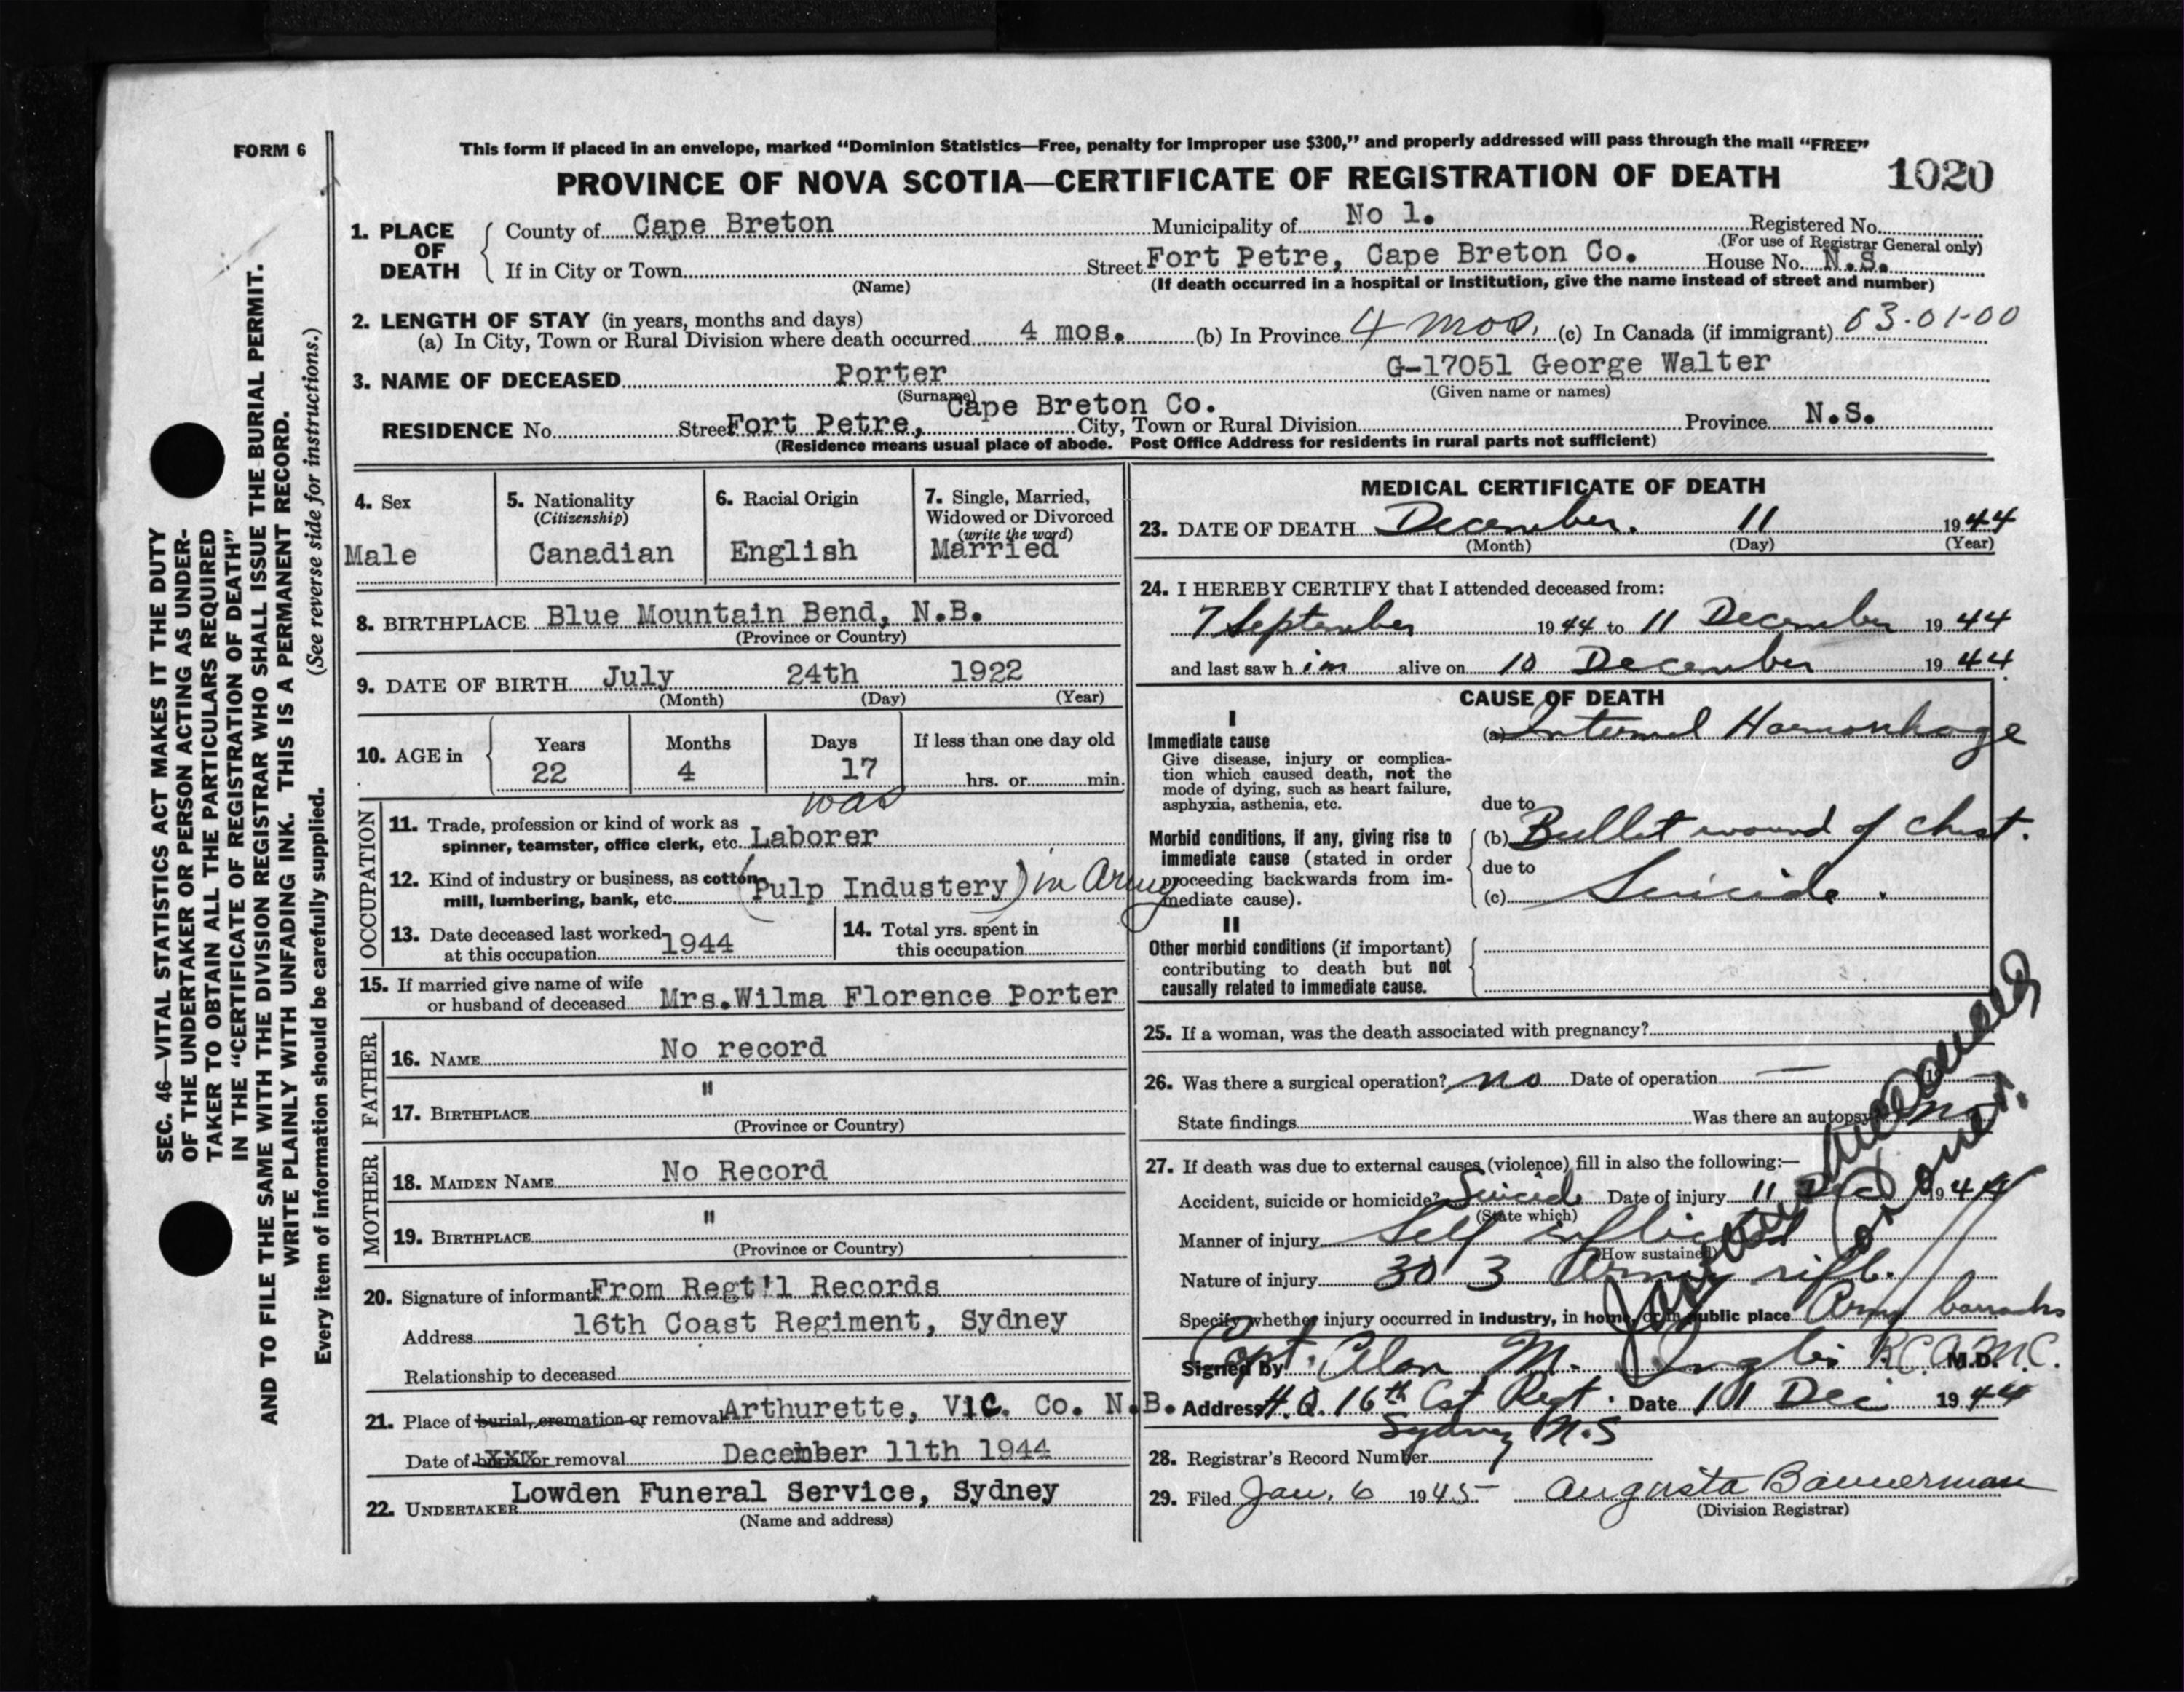 FORM 6
This form if placed in an envelope, marked “Dominion Statistics—Free, penalty for improper use $300,” and properly addressed will pass through the mail “FREE”
PROVINCE OF NOVA SCOTIA—CERTIFICATE OF REGISTRATION OF DEATH 1020
SEC. 46—VITAL STATISTICS ACT MAKES IT THE DUTY
OF THE UNDERTAKER OR PERSON ACTING AS UNDER-
TAKER TO OBTAIN ALL THE PARTICULARS REQUIRED
IN THE “CERTIFICATE OF REGISTRATION OF DEATH”
AND TO FILE THE SAME WITH THE DIVISION REGISTRAR WHO SHALL ISSUE THE BURIAL PERMIT.
WRITE PLAINLY WITH UNFADING INK. THIS IS A PERMANENT RECORD.
Every item of information should be carefully supplied. (See reverse side for instructions.)
1. PLACE OF DEATH
County of Cape Breton Municipality of No 1. Registered No.
(For use of Registrar General only)
If in City or Town Street Fort Petre, Cape Breton Co. House No. N.S.
(Name) (If death occurred in a hospital or institution, give the name instead of street and number)
2. LENGTH OF STAY (in years, months and days)
(a) In City, Town or Rural Division where death occurred 4 mos. (b) In Province 4 mos. (c) In Canada (if immigrant) 03-01-00
3. NAME OF DECEASED Porter G-17051 George Walter
(Surname) (Given name or names)
Cape Breton Co.
RESIDENCE No. Street Fort Petre, City, Town or Rural Division Province N.S.
(Residence means usual place of abode. Post Office Address for residents in rural parts not sufficient)
4. Sex
Male
5. Nationality
(Citizenship)
Canadian
6. Racial Origin
English
7. Single, Married,
Widowed or Divorced
(write the word)
Married
8. BIRTHPLACE Blue Mountain Bend, N.B.
(Province or Country)
9. DATE OF BIRTH July 24th 1922
(Month) (Day) (Year)
10. AGE in
Years Months Days If less than one day old
22 4 17 hrs. or min.
OCCUPATION
was
11. Trade, profession or kind of work as
spinner, teamster, office clerk, etc. Laborer
12. Kind of industry or business, as cotton
mill, lumbering, bank, etc. (Pulp Industery) in Army
13. Date deceased last worked
at this occupation 1944
14. Total yrs. spent in
this occupation
15. If married give name of wife
or husband of deceased Mrs.Wilma Florence Porter
FATHER
16. NAME No record
17. BIRTHPLACE "
(Province or Country)
MOTHER
18. MAIDEN NAME No Record
19. BIRTHPLACE "
(Province or Country)
20. Signature of informant From Regt'l Records
Address 16th Coast Regiment, Sydney
Relationship to deceased
21. Place of burial, cremation or removal Arthurette, Vic. Co. N.B.
Date of burial or removal December 11th 1944
22. UNDERTAKER Lowden Funeral Service, Sydney
(Name and address)
MEDICAL CERTIFICATE OF DEATH
23. DATE OF DEATH December. 11 1944
(Month) (Day) (Year)
24. I HEREBY CERTIFY that I attended deceased from:
7 September 1944 to 11 December 1944
and last saw him alive on 10 December 1944
CAUSE OF DEATH
I
Immediate cause
Give disease, injury or complica-
tion which caused death, not the
mode of dying, such as heart failure,
asphyxia, asthenia, etc.
(a) Internal Hamorrhage
due to
Morbid conditions, if any, giving rise to
immediate cause (stated in order
proceeding backwards from im-
mediate cause).
(b) Bullet wound of chest.
due to
(c) Suicide.
II
Other morbid conditions (if important)
contributing to death but not
causally related to immediate cause.
25. If a woman, was the death associated with pregnancy?
26. Was there a surgical operation? no Date of operation — 19
State findings Was there an autopsy? no
27. If death was due to external causes (violence) fill in also the following:—
Accident, suicide or homicide? Suicide Date of injury 11 Dec 1944
(State which)
Manner of injury Self inflicted
(How sustained)
Nature of injury 303 Army rifle.
Specify whether injury occurred in industry, in home, or in public place Army barracks
Coroner.
Signed by Capt. Alan M. Inglis R.C.A.M.C. M.D.
Address H.Q. 16th Cst Regt. Date 11 Dec 1944
Sydney N.S
28. Registrar's Record Number
29. Filed Jan. 6 1945 Augusta Bannerman
(Division Registrar)